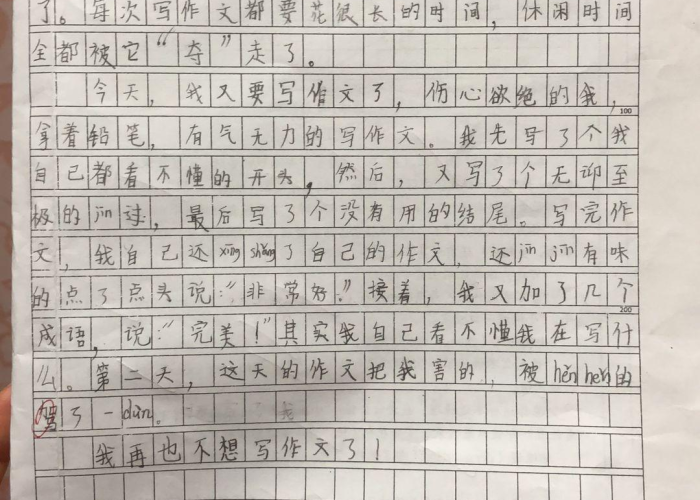 了。每次写作文都要花很长的时间，休闲时间
全都被它“夺”走了。
今天，我又要写作文了，伤心欲绝的我，
100
拿着铅笔，有气无力的写作文。我先写了个我
自己都看不懂的开头，然后，又写了个无聊至
极的jīn过，最后写了个没有用的结尾。写完作
文，我自己还xīng shǎng了自己的作文，还jīn jīn有味
的点了点头说：“非常好。”接着，我又加了几个
200
成语，说：“完美！”其实我自己看不懂我在写什
么。第二天，这天的作文把我害的，被hěn hěn的
骂了一dùn。
我再也不想写作文了！